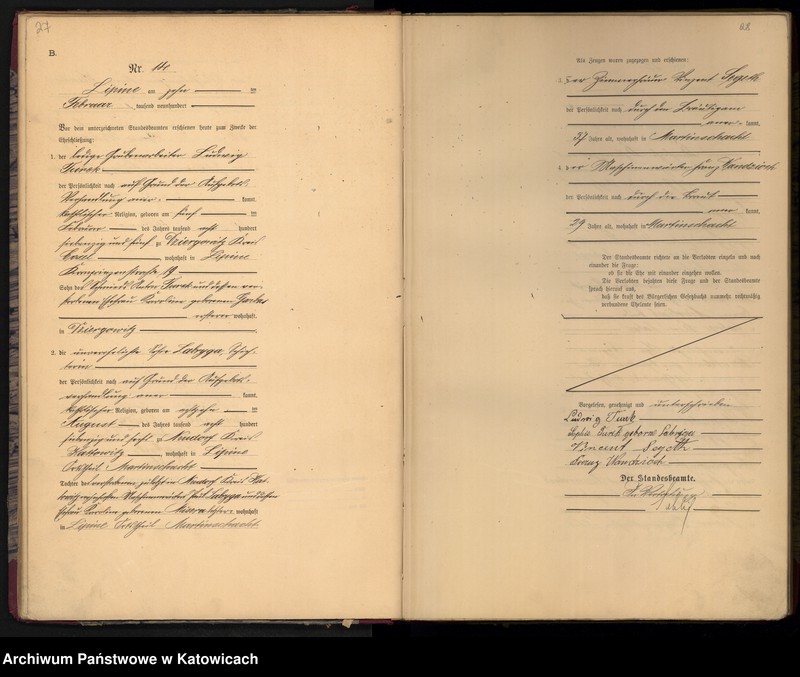 27
B.
Nr. 14.
Lipine am zehn ten
Februar tausend neunhundert
Vor dem unterzeichneten Standesbeamten erschienen heute zum Zwecke der
Eheschließung:
1. der ledige Grubenarbeiter Ludwig
Turek
der Persönlichkeit nach auf Grund der Aufgebots-
Verhandlung aner- kannt,
katholischer Religion, geboren am fünf ten
Februar des Jahres tausend acht hundert
siebenzig und fünf zu Dziergowitz Kreis
Cosel wohnhaft in Lipine
19
Sohn des Turek und dessen ver-
storbenen Ehefrau Karoline geborenen
ersterer wohnhaft
in Dziergowitz
2. die unverehelichte Sofie Labryga,
der Persönlichkeit nach auf Grund der Aufgebots-
verhandlung aner- kannt,
katholischer Religion, geboren am achtzehn ten
August des Jahres tausend acht hundert
siebenzig und sechs zu Antonienhütte Kreis
Kattowitz wohnhaft in Lipine
Ortsteil Martinschacht
Tochter des verstorbenen, zuletzt in Kreis Kat-
towitz Labryga und dessen
Ehefrau Karoline geborenen wohnhaft
in Lipine Ortsteil Martinschacht
28.
Als Zeugen waren zugezogen und erschienen:
3. der Zimmerhauer Vinzent Segeth
der Persönlichkeit nach durch den Bräutigam
aner- kannt,
37 Jahre alt, wohnhaft in Martinschacht
4. der Maschinenwärter Franz Wandzioch
der Persönlichkeit nach durch die Braut
aner kannt,
29 Jahre alt, wohnhaft in Martinschacht
Der Standesbeamte richtete an die Verlobten einzeln und nach
einander die Frage:
ob sie die Ehe mit einander eingehen wollen.
Die Verlobten bejahten diese Frage und der Standesbeamte
sprach hierauf aus,
daß sie kraft des Bürgerlichen Gesetzbuchs nunmehr rechtmäßig
verbundene Eheleute seien.
Vorgelesen, genehmigt und unterschrieben
Ludwig Turek
Sophie Turek geborene Labryga
Vincent Segeth
Franz Wandzioch
Der Standesbeamte.
Archiwum Państwowe w Katowicach